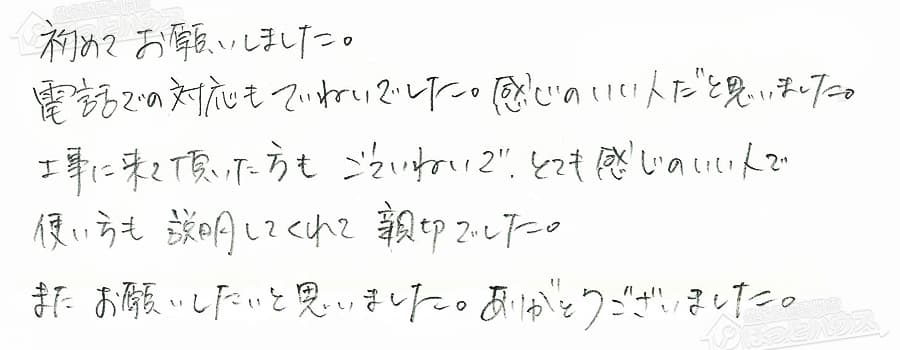 初めて お願いしました。
電話での対応もていねいでした。感じのいい人だと思いました。
工事に来て頂いた方も ごていねいで、とても感じのいい人で
使い方も 説明してくれて 親切でした。
また お願いしたいと思いました。ありがとうございました。